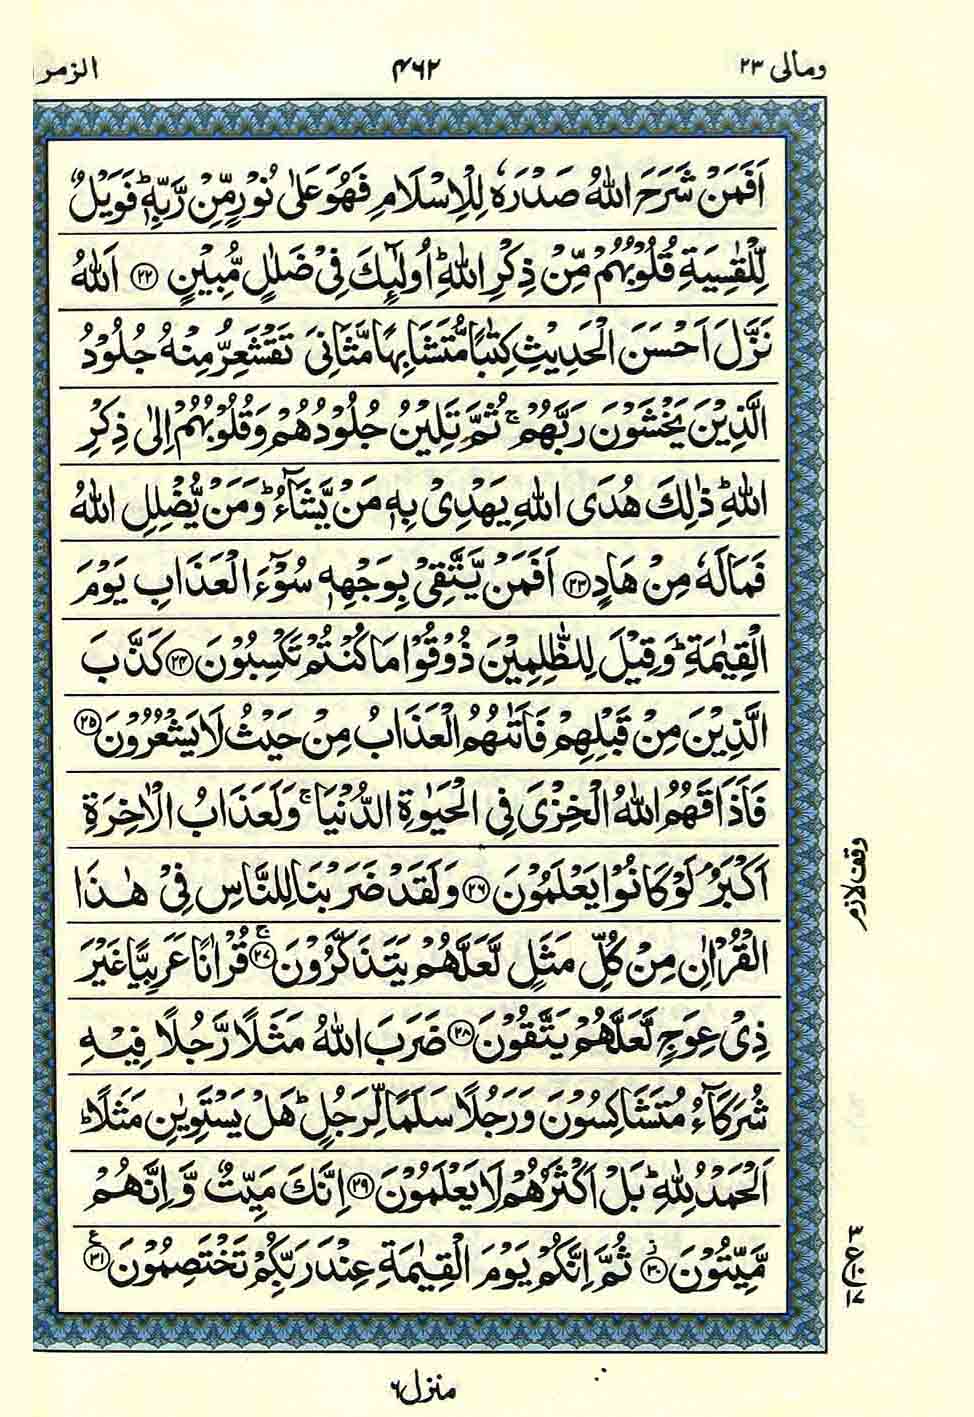 الزمر ۴۶۲ ومالی ۲۳
اَفَمَنْ شَرَحَ اللّٰهُ صَدْرَهٗ لِلْاِسْلَامِ فَهُوَ عَلٰی نُوْرٍ مِّنْ رَّبِّهٖ ؕ فَوَيْلٌ
لِّلْقٰسِيَةِ قُلُوْبُهُمْ مِّنْ ذِكْرِ اللّٰهِ ؕ اُولٰٓئِكَ فِیْ ضَلٰلٍ مُّبِيْنٍ ﴿۲۲﴾ اَللّٰهُ
نَزَّلَ اَحْسَنَ الْحَدِيْثِ كِتٰبًا مُّتَشَابِهًا مَّثَانِیَ تَقْشَعِرُّ مِنْهُ جُلُوْدُ
الَّذِيْنَ يَخْشَوْنَ رَبَّهُمْ ۚ ثُمَّ تَلِيْنُ جُلُوْدُهُمْ وَقُلُوْبُهُمْ اِلٰی ذِكْرِ
اللّٰهِ ؕ ذٰلِكَ هُدَی اللّٰهِ يَهْدِیْ بِهٖ مَنْ يَّشَآءُ ؕ وَمَنْ يُّضْلِلِ اللّٰهُ
فَمَا لَهٗ مِنْ هَادٍ ﴿۲۳﴾ اَفَمَنْ يَّتَّقِیْ بِوَجْهِهٖ سُوْٓءَ الْعَذَابِ يَوْمَ
الْقِيٰمَةِ ؕ وَقِيْلَ لِلظّٰلِمِيْنَ ذُوْقُوْا مَا كُنْتُمْ تَكْسِبُوْنَ ﴿۲۴﴾ كَذَّبَ
الَّذِيْنَ مِنْ قَبْلِهِمْ فَاَتٰىهُمُ الْعَذَابُ مِنْ حَيْثُ لَا يَشْعُرُوْنَ ﴿۲۵﴾
فَاَذَاقَهُمُ اللّٰهُ الْخِزْیَ فِی الْحَيٰوةِ الدُّنْيَا ۚ وَلَعَذَابُ الْاٰخِرَةِ
اَكْبَرُ ۘ لَوْ كَانُوْا يَعْلَمُوْنَ ﴿۲۶﴾ وَلَقَدْ ضَرَبْنَا لِلنَّاسِ فِیْ هٰذَا
وقف لازم
الْقُرْاٰنِ مِنْ كُلِّ مَثَلٍ لَّعَلَّهُمْ يَتَذَكَّرُوْنَ ﴿۲۷﴾ ۚ قُرْاٰنًا عَرَبِيًّا غَيْرَ
ذِیْ عِوَجٍ لَّعَلَّهُمْ يَتَّقُوْنَ ﴿۲۸﴾ ضَرَبَ اللّٰهُ مَثَلًا رَّجُلًا فِيْهِ
شُرَكَآءُ مُتَشَاكِسُوْنَ وَرَجُلًا سَلَمًا لِّرَجُلٍ ؕ هَلْ يَسْتَوِيٰنِ مَثَلًا ؕ
اَلْحَمْدُ لِلّٰهِ ؕ بَلْ اَكْثَرُهُمْ لَا يَعْلَمُوْنَ ﴿۲۹﴾ اِنَّكَ مَيِّتٌ وَّ اِنَّهُمْ
مَّيِّتُوْنَ ﴿۳۰﴾ ؗ ثُمَّ اِنَّكُمْ يَوْمَ الْقِيٰمَةِ عِنْدَ رَبِّكُمْ تَخْتَصِمُوْنَ ﴿۳۱﴾ ع
منزل ۶